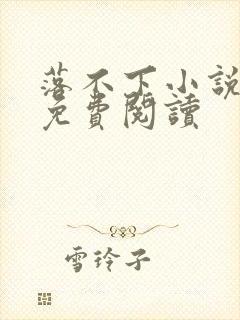 落不下小說
免費閱讀
雪玲子